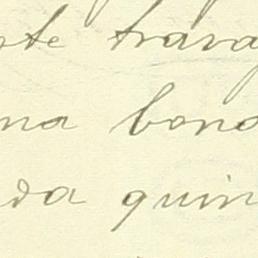 ste trava
na bona
da quin